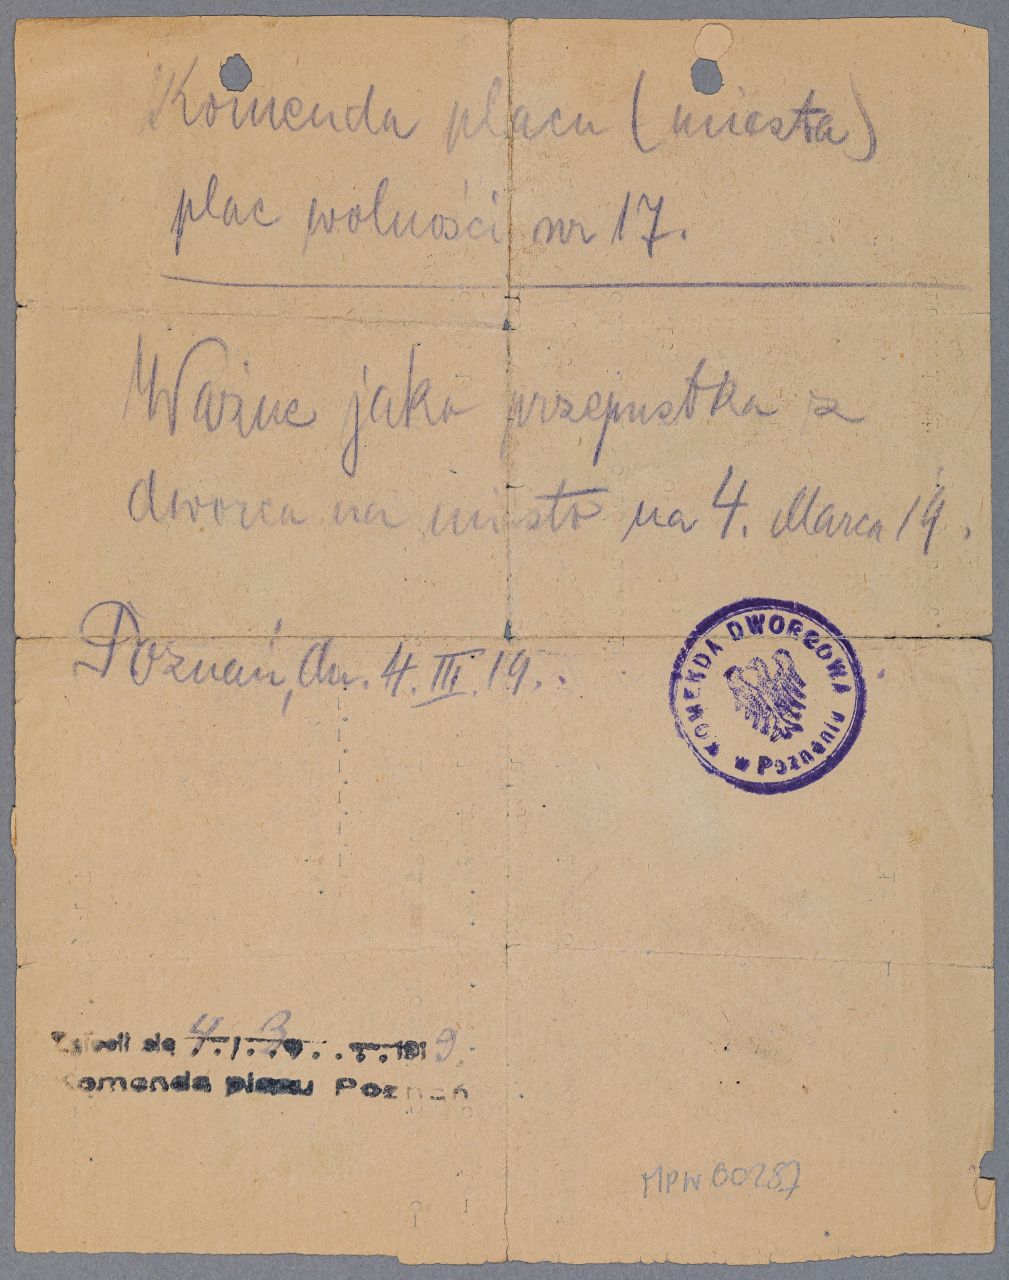 Komenda placu (miasta)
plac wolności nr 17.
Ważne jako przepustka z
dworca na miasto na 4. Marca 19.
Poznań, dn. 4. III. 19.
KOMENDA DWORCOWA
w Poznaniu
Zgłosił się 4. 3. 1919.
Komenda placu Poznań
MPW 00287